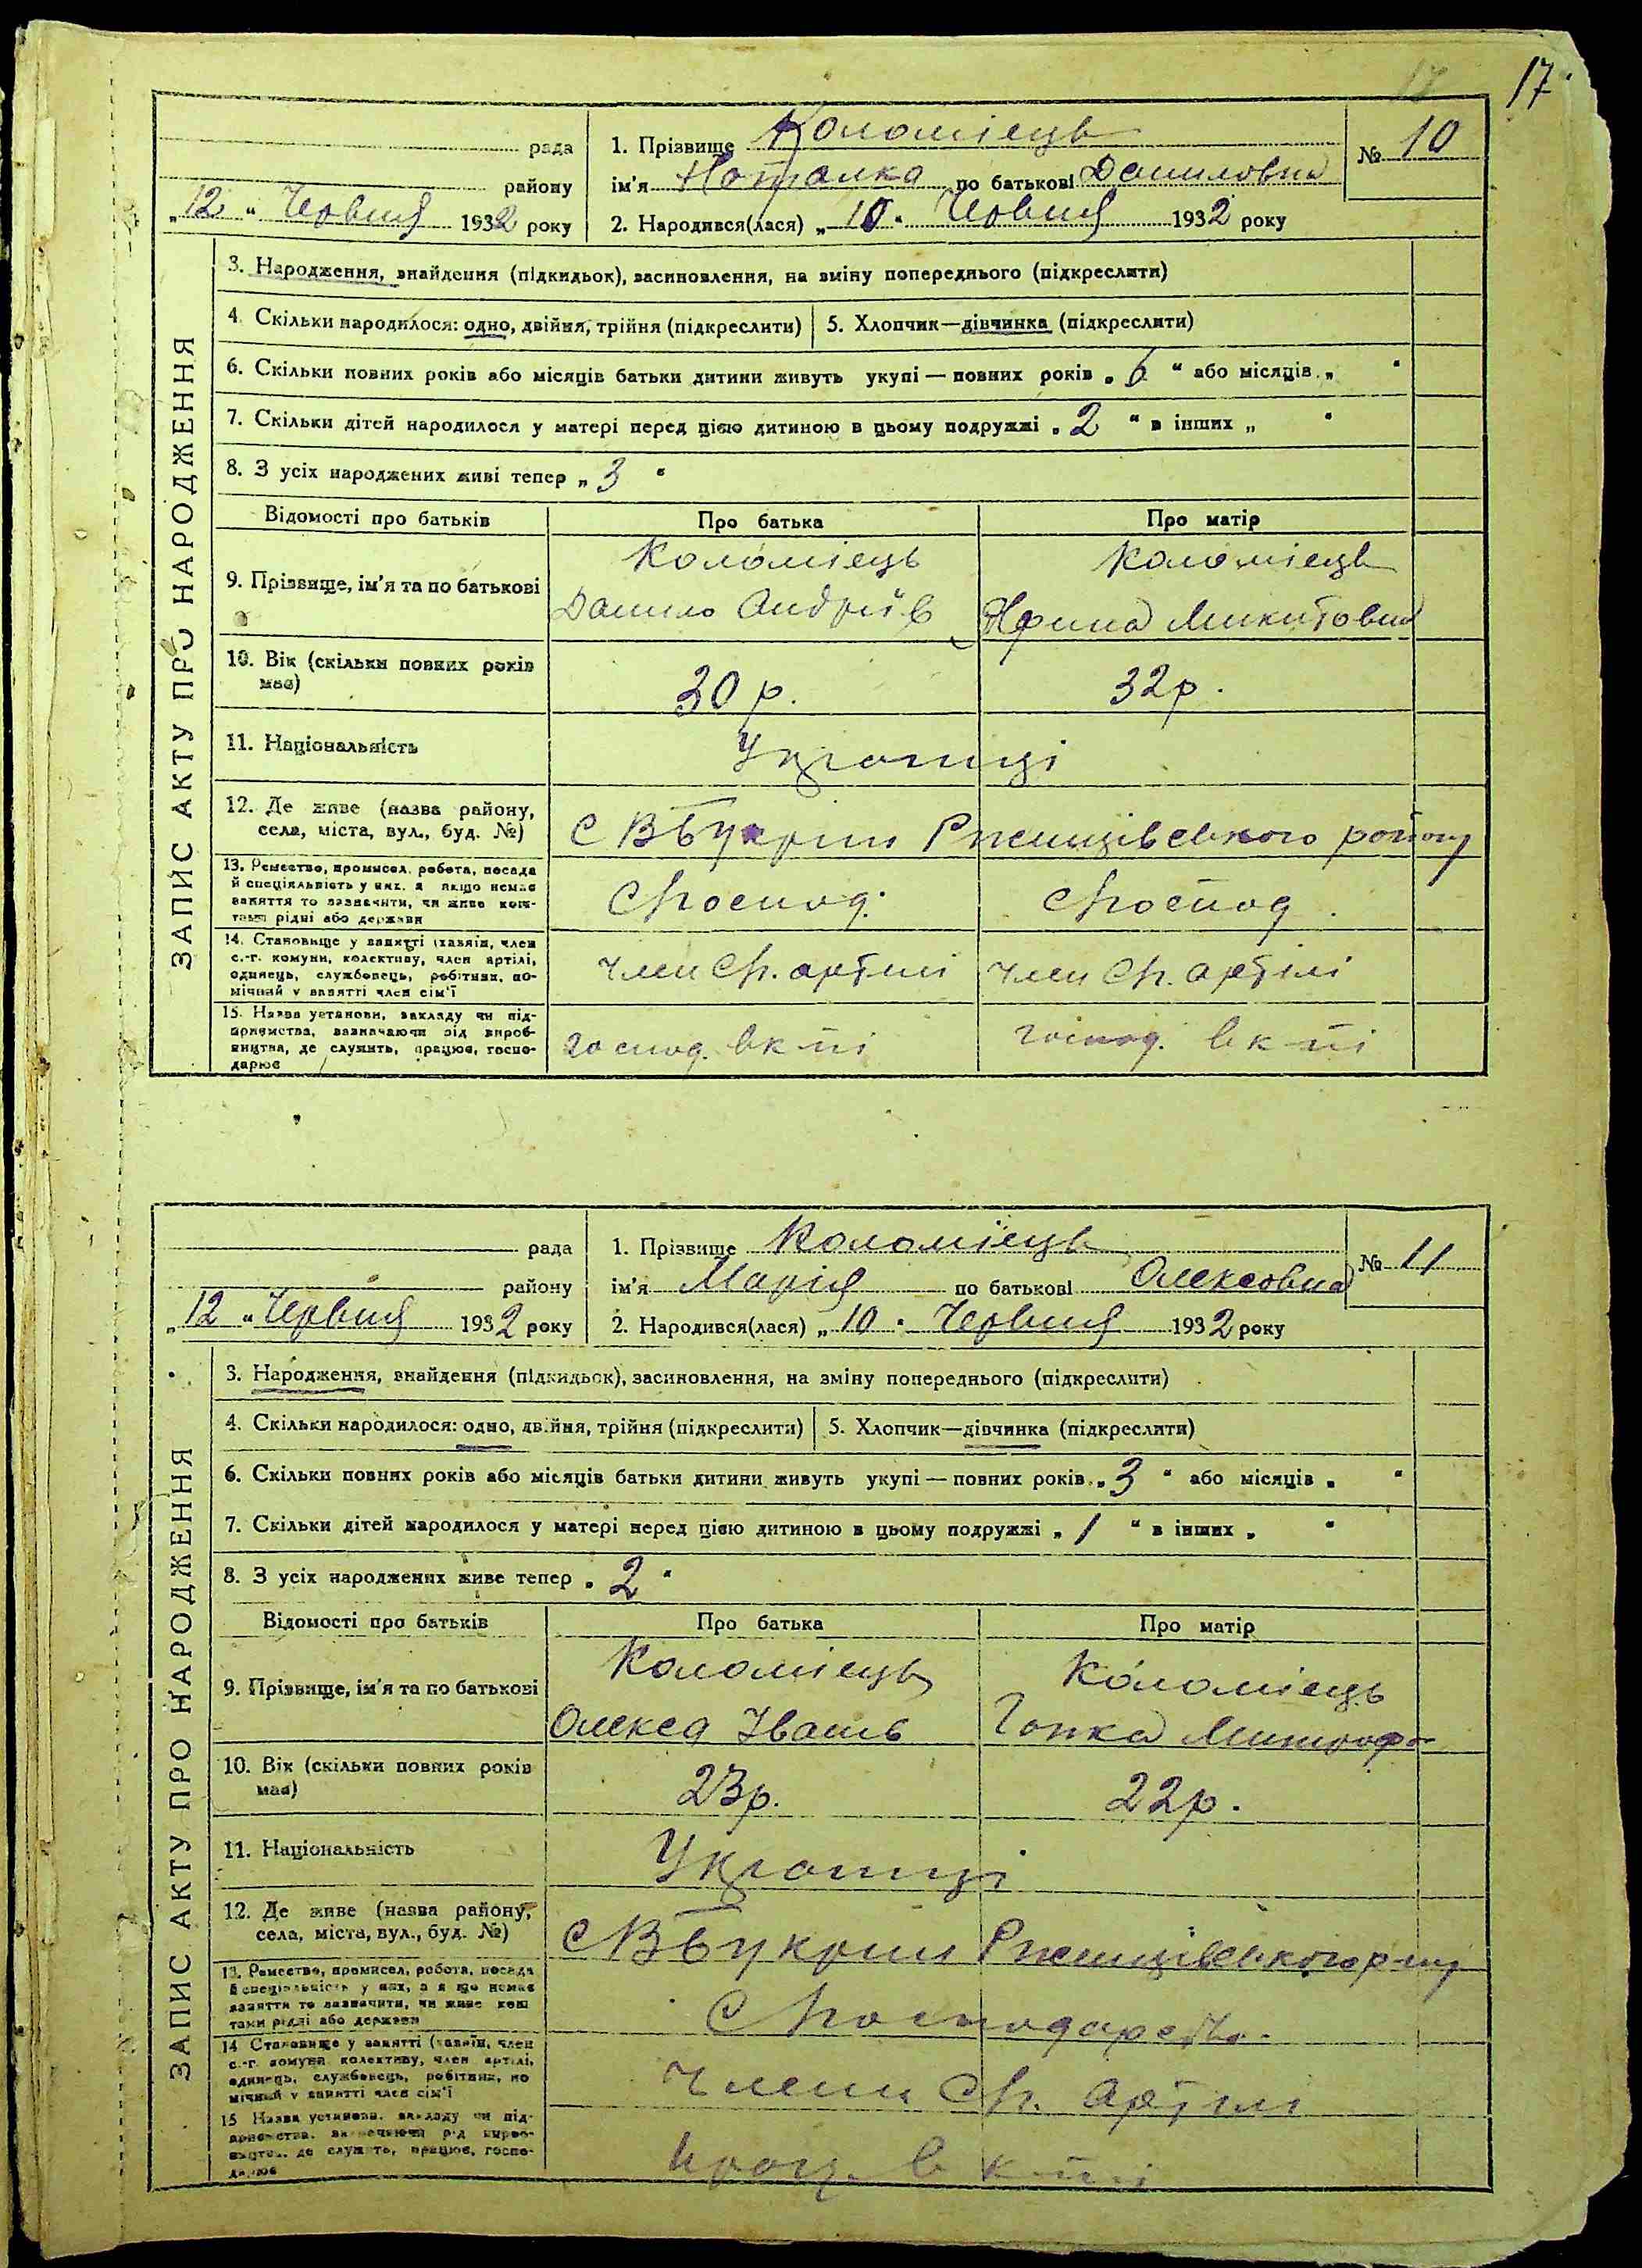 17
17.
рада
району
„12 “ Червня 1932 року
1. Прізвище Коломієць
ім'я Наталка по батькові Даниловна
2. Народився(лася) „ 10 “ Червня 1932 року
№ 10
ЗАПИС АКТУ ПРО НАРОДЖЕННЯ
3. Народження, знайдення (підкидьок), засиновлення, на зміну попереднього (підкреслити)
4. Скільки народилося: одно, двійня, трійня (підкреслити) 5. Хлопчик—дівчинка (підкреслити)
6. Скільки повних років або місяців батьки дитини живуть укупі — повних років „ 6 “ або місяців „ “
7. Скільки дітей народилося у матері перед цією дитиною в цьому подружжі „ 2 “ в інших „ “
8. З усіх народжених живі тепер „ 3 “
Відомості про батьків Про батька Про матір
9. Прізвище, ім'я та по батькові
Коломієць
Данило Андріїв
Коломієць
Ярина Микитовна
10. Вік (скільки повних років має)
30 р. 32 р.
11. Національність
Українці
12. Де живе (назва району,
села, міста, вул., буд. №)
С ВБукрин Ржищівського району
13. Ремество, промисел, робота, посада
й спеціяльність у них, а якщо немає
заняття то зазначити, чи живе кош-
тами рідні або держави
С/госпад. С/госпад.
14. Становище у занятті (хазяїн, член
с.-г. комуни, колективу, член артілі,
одинець, службовець, робітник, по-
мічний у занятті член сім'ї
Член С/г. артілі Член С/г. артілі
15. Назва установи, закладу чи під-
приємства, зазначаючи рід вироб-
ництва, де служить, працює, госпо-
дарює
господ. в к-ті господ. в к-ті
рада
району
„12 “ Червня 1932 року
1. Прізвище Коломієць
ім'я Марія по батькові Олексовна
2. Народився(лася) „ 10 “ Червня 1932 року
№ 11
ЗАПИС АКТУ ПРО НАРОДЖЕННЯ
3. Народження, знайдення (підкидьок), засиновлення, на зміну попереднього (підкреслити)
4. Скільки народилося: одно, двійня, трійня (підкреслити) 5. Хлопчик—дівчинка (підкреслити)
6. Скільки повних років або місяців батьки дитини живуть укупі — повних років „ 3 “ або місяців „ “
7. Скільки дітей народилося у матері перед цією дитиною в цьому подружжі „ 1 “ в інших „ “
8. З усіх народжених живе тепер „ 2 “
Відомості про батьків Про батька Про матір
9. Прізвище, ім'я та по батькові
Коломієць
Олекса Іванів
Коломієць
Гапка Митроф
10. Вік (скільки повних років
має)
23р. 22р.
11. Національність
Українці
12. Де живе (назва району,
села, міста, вул., буд. №)
С ВБукрин Ржищівського р-ну
13. Ремество, промисел, робота, посада
й спеціяльність у них, а якщо немає
заняття то зазначити, чи живе кош
тами рідні або держави
С/господарство.
14 Становище у занятті (хазяїн, член
с.-г. комуни колективу, член артілі,
одинець, службовець, робітник, по
мічний у занятті член сім'ї
Члени С/г. артілі
15 Назва установи, закладу чи під-
приємства, зазначаючи рід вироб-
ництва, де служить, працює, госпо-
дарює
прац. в к-ті